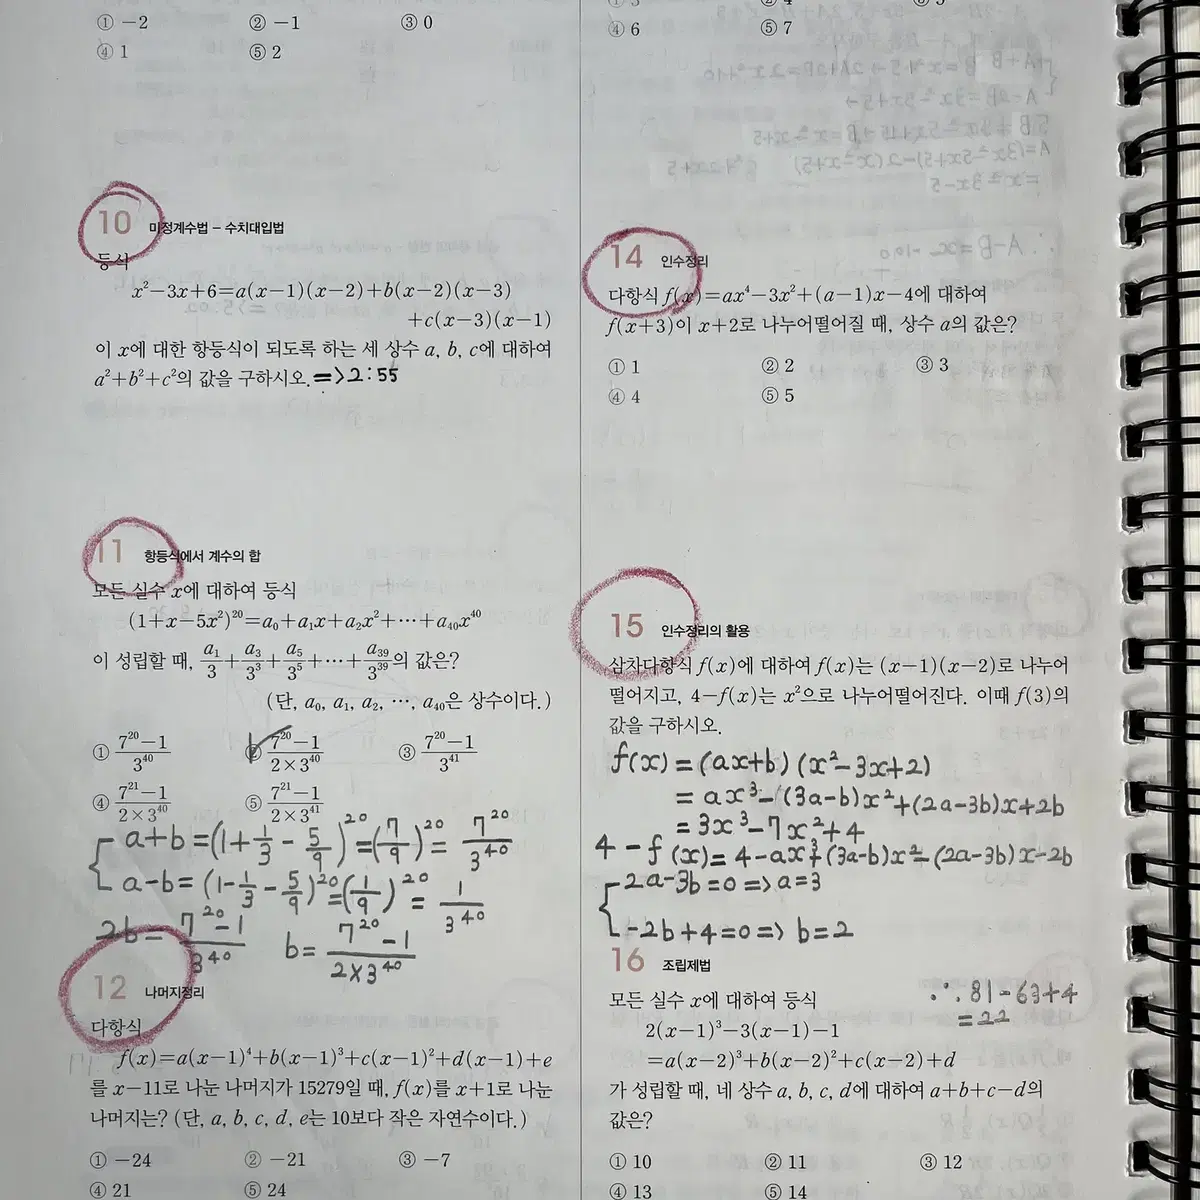 ① -2 ② -1 ③ 0
④ 1 ⑤ 2
10 미정계수법 - 수치대입법
등식
x²-3x+6=a(x-1)(x-2)+b(x-2)(x-3)
+c(x-3)(x-1)
이 x에 대한 항등식이 되도록 하는 세 상수 a, b, c에 대하여
a²+b²+c²의 값을 구하시오. => 2:55
11 항등식에서 계수의 합
모든 실수 x에 대하여 등식
(1+x-5x²)²⁰=a₀+a₁x+a₂x²+⋯+a₄₀x⁴⁰
이 성립할 때, a₁/3+a₃/3³+a₅/3⁵+⋯+a₃₉/3³⁹의 값은?
(단, a₀, a₁, a₂, ⋯, a₄₀은 상수이다.)
① (7²⁰-1)/3⁴⁰ ② (7²⁰-1)/(2×3⁴⁰) ③ (7²⁰-1)/3⁴¹
④ (7²¹-1)/(2×3⁴⁰) ⑤ (7²¹-1)/(2×3⁴¹)
a+b=(1+1/3-5/9)²⁰=(7/9)²⁰=7²⁰/3⁴⁰
a-b=(1-1/3-5/9)²⁰=(1/9)²⁰=1/3⁴⁰
2b=(7²⁰-1)/3⁴⁰ b=(7²⁰-1)/(2×3⁴⁰)
12 나머지정리
다항식
f(x)=a(x-1)⁴+b(x-1)³+c(x-1)²+d(x-1)+e
를 x-11로 나눈 나머지가 15279일 때, f(x)를 x+1로 나눈
나머지는? (단, a, b, c, d, e는 10보다 작은 자연수이다.)
① -24 ② -21 ③ -7
④ 21 ⑤ 24
④ 6 ⑤ 7
14 인수정리
다항식 f(x)=ax⁴-3x²+(a-1)x-4에 대하여
f(x+3)이 x+2로 나누어떨어질 때, 상수 a의 값은?
① 1 ② 2 ③ 3
④ 4 ⑤ 5
15 인수정리의 활용
삼차다항식 f(x)에 대하여 f(x)는 (x-1)(x-2)로 나누어
떨어지고, 4-f(x)는 x²으로 나누어떨어진다. 이때 f(3)의
값을 구하시오.
f(x)=(ax+b)(x²-3x+2)
=ax³-(3a-b)x²+(2a-3b)x+2b
=3x³-7x²+4
4-f(x)=4-ax³+(3a-b)x²-(2a-3b)x-2b
2a-3b=0=>a=3
-2b+4=0=>b=2
∴ 81-63+4
=22
16 조립제법
모든 실수 x에 대하여 등식
2(x-1)³-3(x-1)-1
=a(x-2)³+b(x-2)²+c(x-2)+d
가 성립할 때, 네 상수 a, b, c, d에 대하여 a+b+c-d의
값은?
① 10 ② 11 ③ 12
④ 13 ⑤ 14